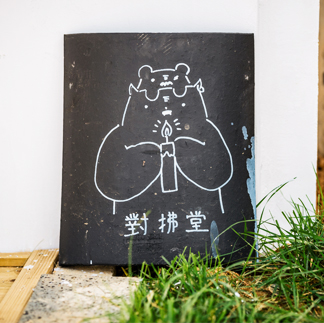 對拂堂